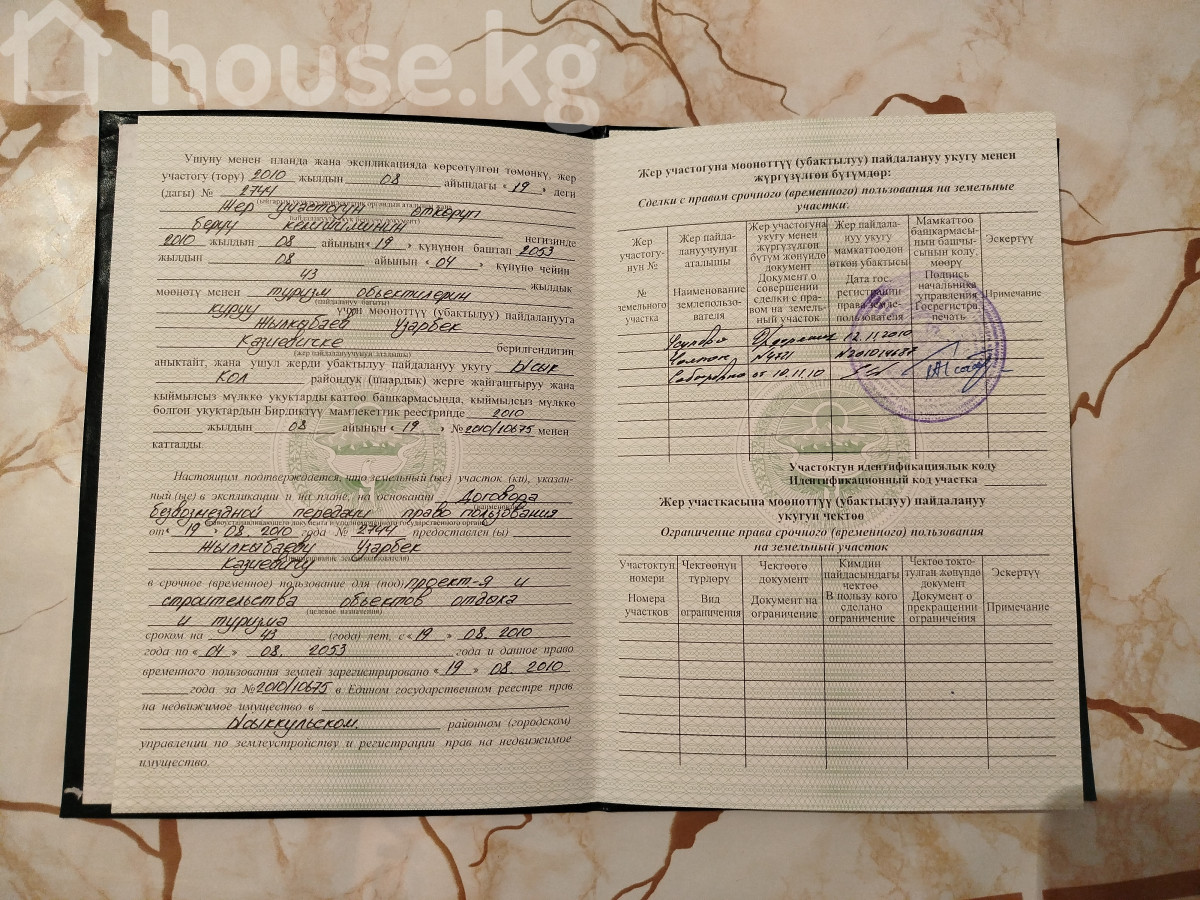 house.kg
Ушуну менен планда жана экспликацияда көрсөтүлгөн төмөнкү, жер
участогу (тору) 2010 жылдын 08 айындагы «19» деги
(дагы) № 2744
Жер участогун өткөрүп
берүү келишиминин негизинде
2010 жылдын 08 айынын «19» күнүнөн баштап 2053
жылдын 08 айынын «04» күнүнө чейин
43 жылдык
мөөнөтү менен туризм объектилерин
(пайдалануу багыты)
куруу үчүн мөөнөттүү (убактылуу) пайдаланууга
Жылкыбаев Узарбек
Казиевичке берилгендигин
(жер пайдалануучунун аталышы)
аныктайт, жана ушул жерди убактылуу пайдалануу укугу Ысык
Көл райондук (шаардык) жерге жайгаштыруу жана
кыймылсыз мүлккө укуктарды каттоо башкармасында, кыймылсыз мүлккө
болгон укуктардын Бирдиктүү мамлекеттик реестринде 2010
жылдын 08 айынын «19» № 2010/10675 менен
катталды.
Настоящим подтверждается, что земельный (ые) участок (ки), указан-
ный (ые) в экспликации и на плане, на основании Договора
безвозмезной передачи право пользования
от «19» 08. 2010 года № 2744 предоставлен (ы)
Жылкыбаеву Узарбек
Казиевичу
в срочное (временное) пользование для (под) проект-я и
строительства объектов отдыха
(целевое назначение)
и туризма
сроком на 43 (года) лет, с «19» 08. 2010
года по «04» 08. 2053 года и данное право
временного пользования землей зарегистрировано «19» 08. 2010
года за № 2010/10675 в Едином государственном реестре прав
на недвижимое имущество в
Ысыккульском. районном (городском)
управлении по землеустройству и регистрации прав на недвижимое
имущество.
Жер участогуна мөөнөттүү (убактылуу) пайдалануу укугу менен
жүргүзүлгөн бүтүмдөр:
Сделки с правом срочного (временного) пользования на земельные
участки.
Жер участогу-нун №
№ земельного участка
Жер пайда-лануучунун аталышы
Наименование землепользо-вателя
Жер участогуна укугу менен жүргүзүлгөн бүтүм жөнүндө документ
Документ о совершении сделки с пра-вом на земель-ный участок
Жер пайдала-нуу укугу мамкаттоодон өткөн убактысы
Дата гос. регистрации права земле-пользователя
Мамкаттоо башкармасы-нын башчы-сынын коду, мөөрү
Подпись начальника управления Госрегистра, печать
Эскертүү
Примечание
12.11.2010
№4721
от 10.11.10
Участоктун идентификациялык коду
Идентификационный код участка
Жер участкасына мөөнөттүү (убактылуу) пайдалануу
укугун чектөө
Ограничение права срочного (временного) пользования
на земельный участок
Участоктун номери
Номера участков
Чектөөнүн түрлөрү
Вид ограничения
Чектөөгө документ
Документ на ограничение
Кимдин пайдасындагы чектөө
В пользу кого сделано ограничение
Чектөө токто-тулган жөнүндө документ
Документ о прекращении ограничения
Эскертүү
Примечание